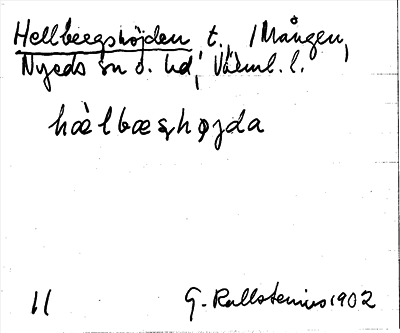 Hellbergshöjden t. /Mången,
Nyeds sn o. hd, Värml. l.
hæ̀lbæʂhøjda
11 G. Kallstenius 1902